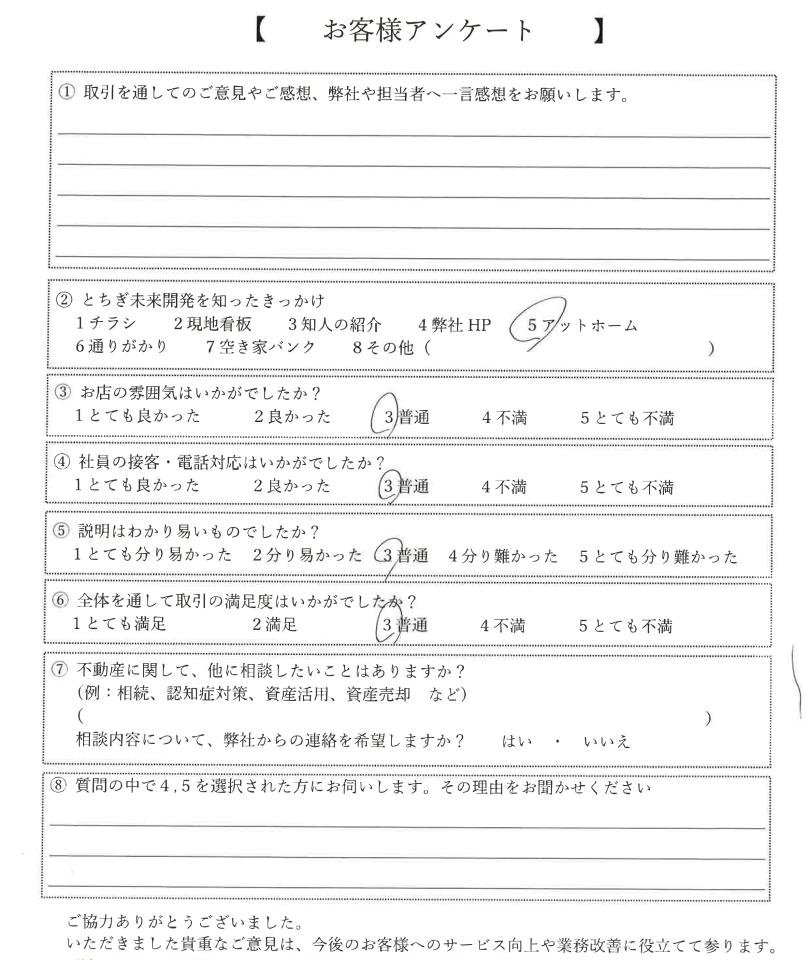 【 お客様アンケート 】
① 取引を通してのご意見やご感想、弊社や担当者へ一言感想をお願いします。
② とちぎ未来開発を知ったきっかけ
1チラシ 2現地看板 3知人の紹介 4弊社HP 5アットホーム
6通りがかり 7空き家バンク 8その他 ( )
③ お店の雰囲気はいかがでしたか？
1とても良かった 2良かった 3普通 4不満 5とても不満
④ 社員の接客・電話対応はいかがでしたか？
1とても良かった 2良かった 3普通 4不満 5とても不満
⑤ 説明はわかり易いものでしたか？
1とても分り易かった 2分り易かった 3普通 4分り難かった 5とても分り難かった
⑥ 全体を通して取引の満足度はいかがでしたか？
1とても満足 2満足 3普通 4不満 5とても不満
⑦ 不動産に関して、他に相談したいことはありますか？
(例：相続、認知症対策、資産活用、資産売却 など)
( )
相談内容について、弊社からの連絡を希望しますか？ はい ・ いいえ
⑧ 質問の中で4,5を選択された方にお伺いします。その理由をお聞かせください
ご協力ありがとうございました。
いただきました貴重なご意見は、今後のお客様へのサービス向上や業務改善に役立てて参ります。